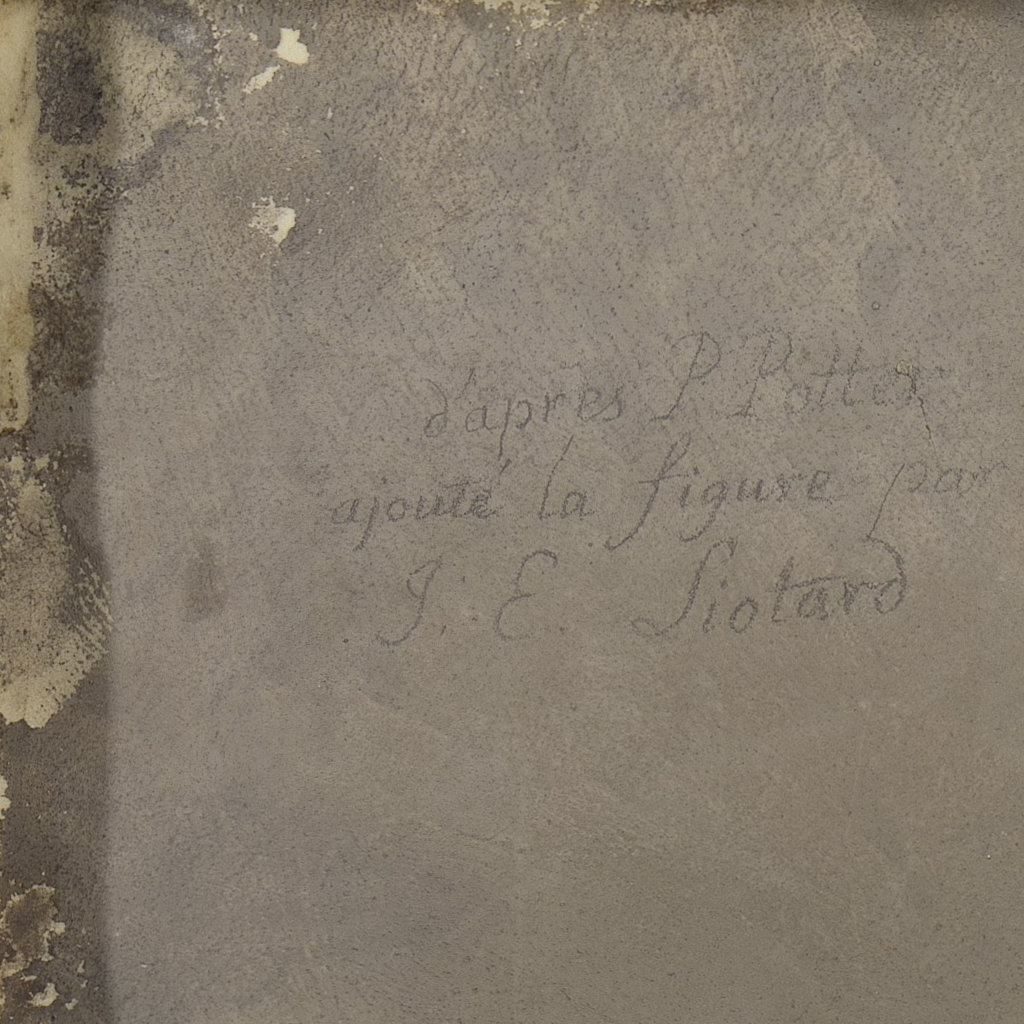 d'après P Potter
ajouté la figure par
J. E. Liotard